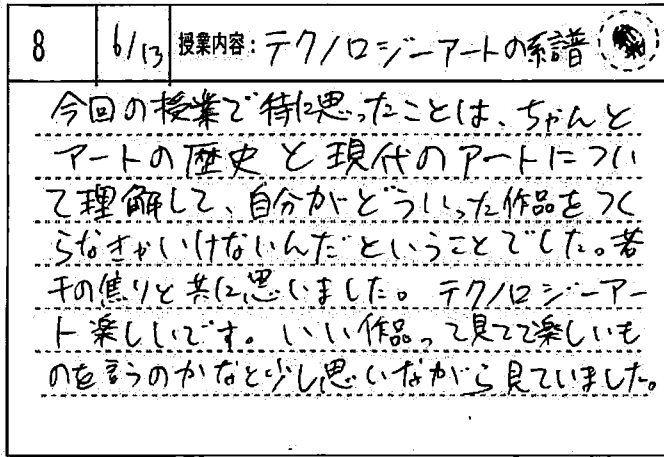 8 6/13 授業内容:テクノロジーアートの系譜
今回の授業で特に思ったことは、ちゃんと
アートの歴史と現代のアートについ
て理解して、自分がどういった作品をつく
らなきゃいけないんだということでした。若
干の焦りと共に思いました。テクノロジーアー
ト楽しいです。いい作品って見てて楽しいも
のを言うのかなと少し思いながら見ていました。